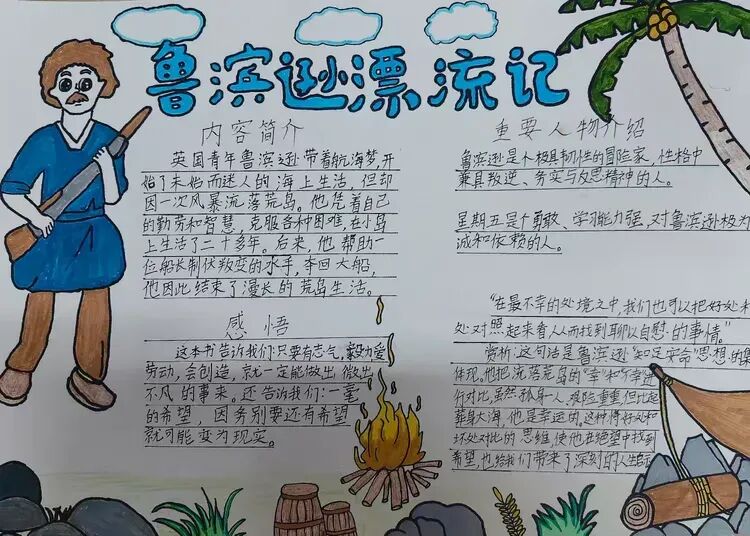 鲁滨逊漂流记
内容简介
英国青年鲁滨逊带着航海梦,开
始了未始而迷人的海上生活,但却
因一次风暴流落荒岛。他凭着自己
的勤劳和智慧,克服各种困难,在小岛
上生活了二十多年。后来,他帮助一
位船长制伏叛变的水手,夺回大船,
他因此结束了漫长的荒岛生活。
感悟
这本书告诉我们:只要有志气,毅力,爱
劳动,会创造,就一定能做出做出
不凡的事来。还告诉我们:一毫
的希望,因务别要还有希望
就可能变为现实。
重要人物介绍
鲁滨逊是个极具韧性的冒险家,性格中
兼具叛逆、务实与反思精神的人。
星期五是个勇敢、学习能力强,对鲁滨逊极为
诚和依赖的人。
“在最不幸的处境之中,我们也可以把好处和
处对照起来看,从而找到聊以自慰的事情。”
赏析:这句话是鲁滨逊“知足安命”思想的集
体现。他把流落荒岛的“幸”和“不幸”进
行对比,虽然孤身一人,艰险重重,但比起
葬身大海,他是幸运的。这种将好处和
坏处对比的思维,使他在绝望中找到
希望,也给我们带来了深刻的人生启